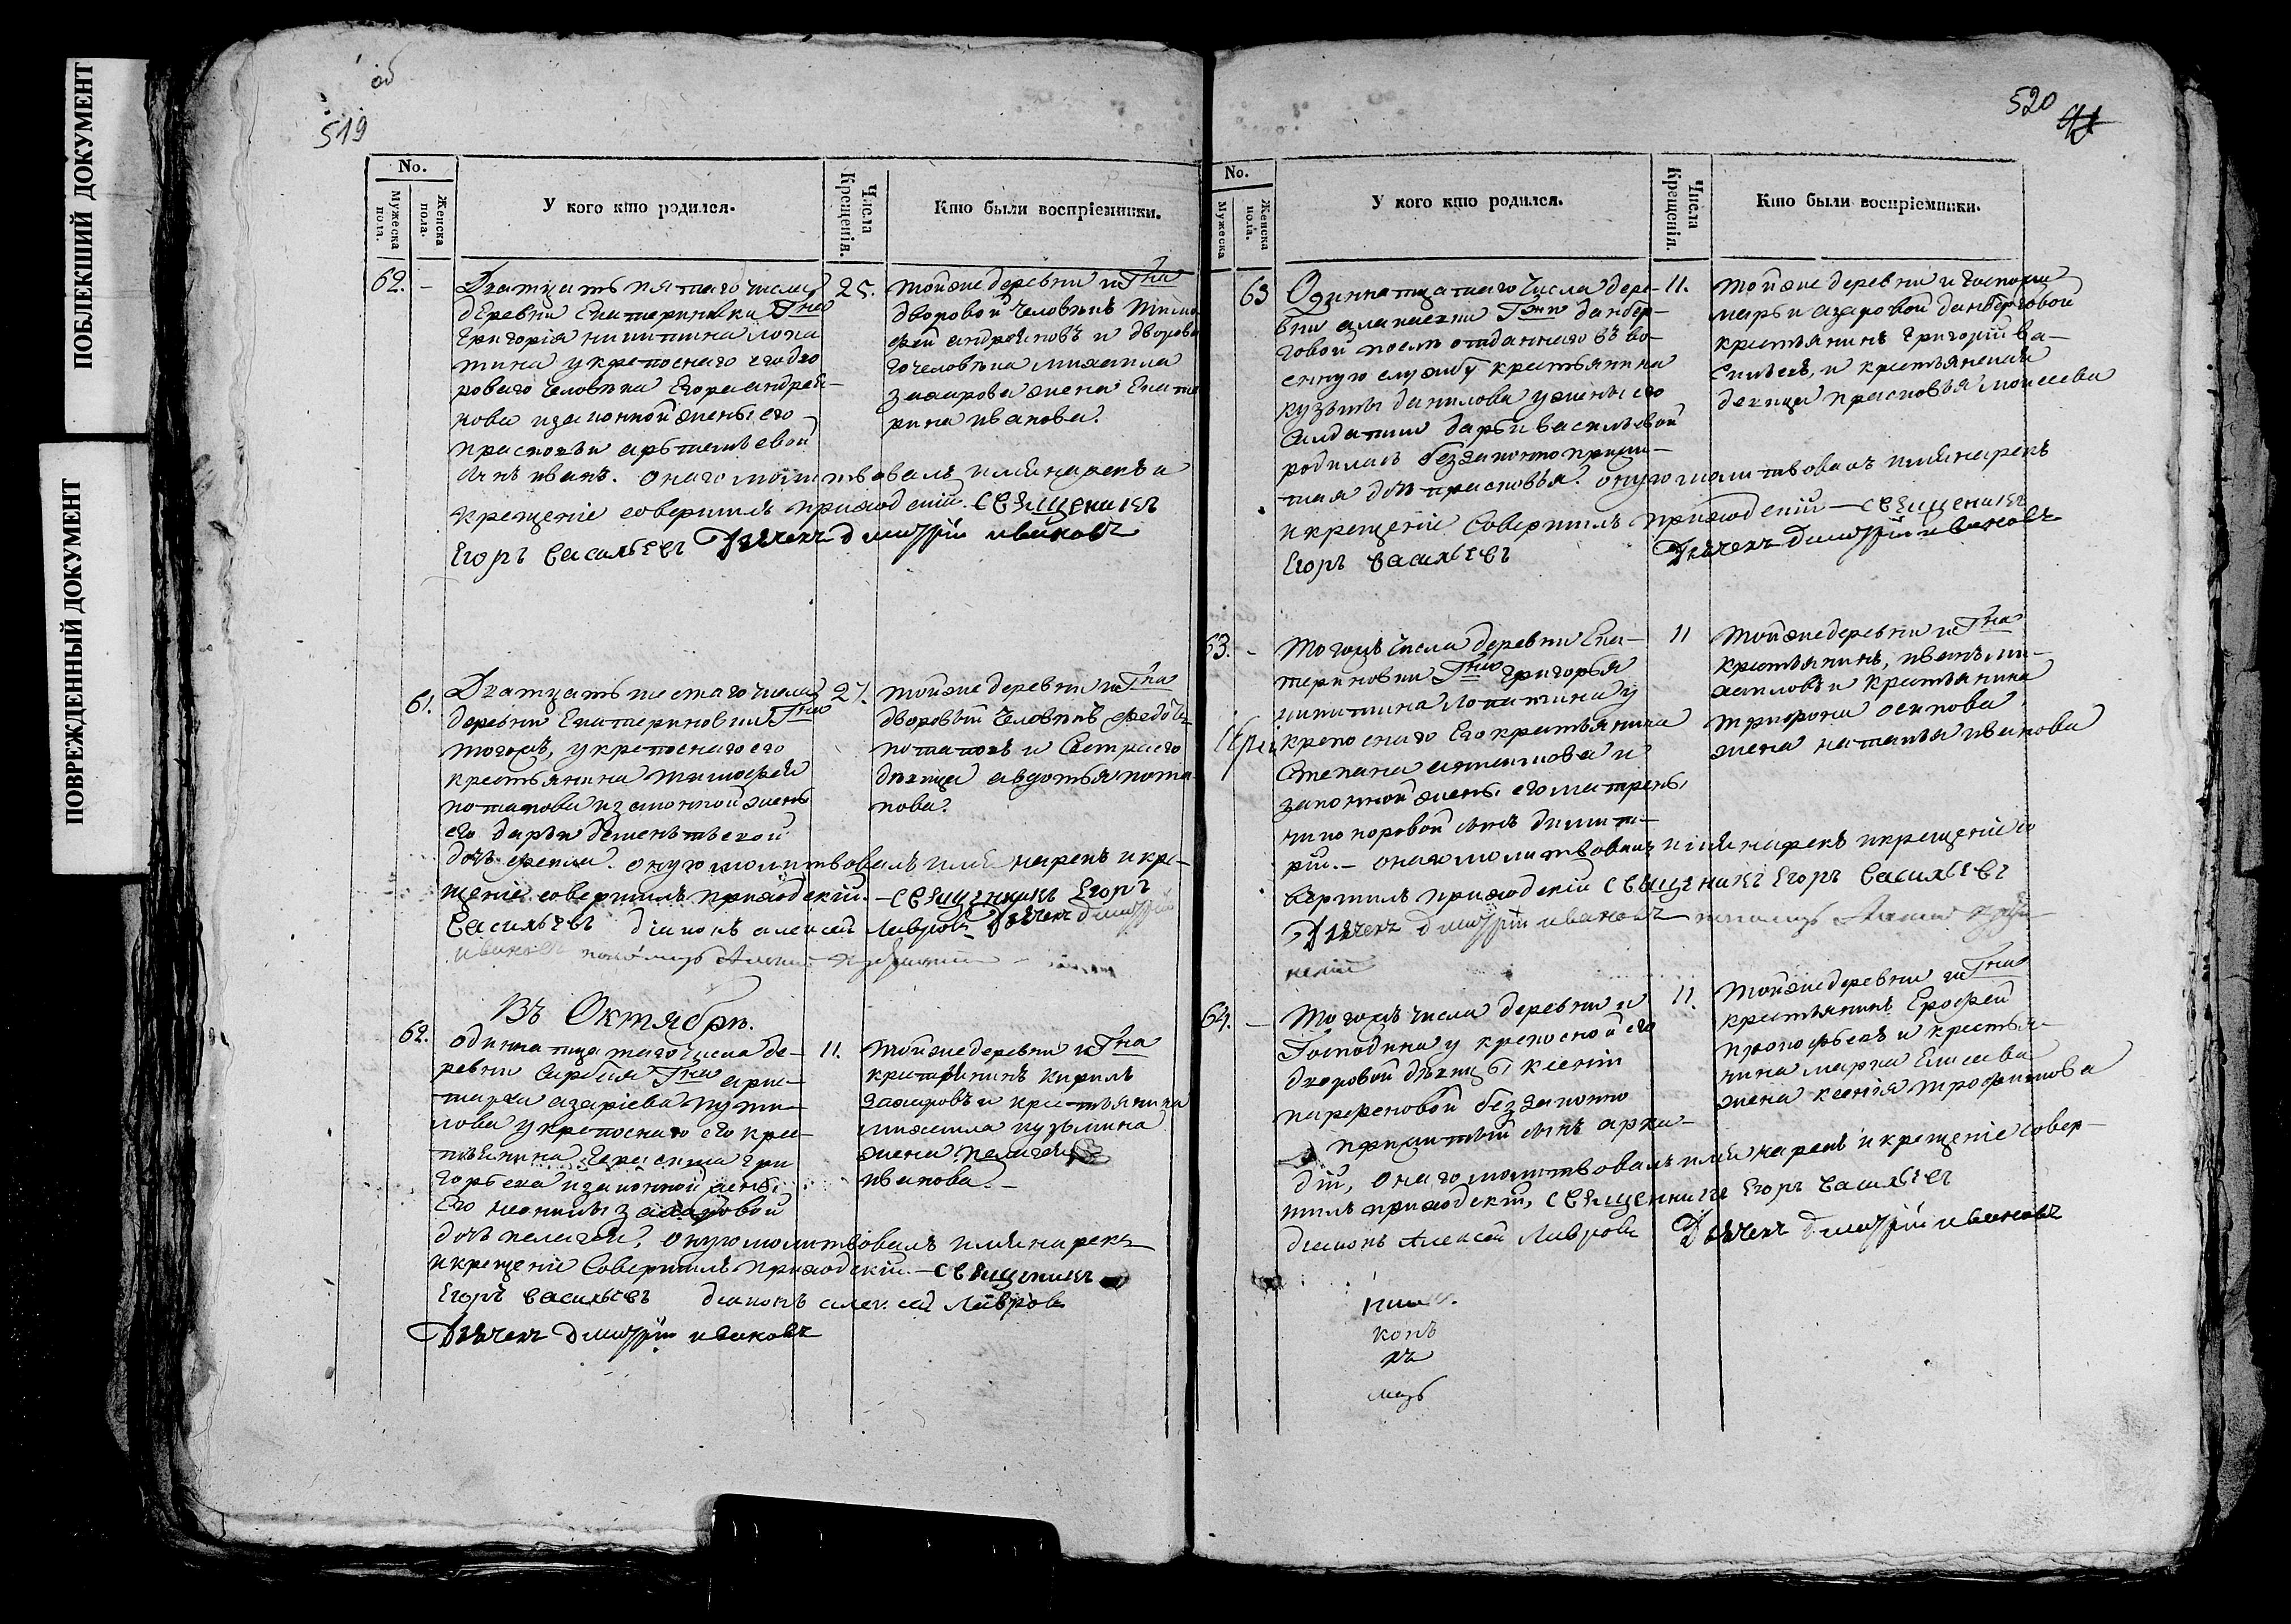 ПОБЛЕКШИЙ ДОКУМЕНТ
ПОВРЕЖДЕННЫЙ ДОКУМЕНТ
об
519
No.
Мужеска пола.
Женска пола.
У кого кто родился.
Числа Крещенія.
Кто были воспріемники.
62. -
Дватцать пятаго числа
деревни Екатериновки Гна
Григорія никитина лопа
тина укрепоснаго его дво
роваго человѣка Егора андрея-
нова изаконной жены его
прасковьи артемьевой
сынъ иванъ. онаго молитвовалъ имя нарекъ и
крещеніе совершилъ приходскій священикъ
Егоръ васильевъ Дьячекъ дмитрій ивановъ
25.
тойже деревни и Гна
дворовой человѣкъ тимо
фей андреяновъ и дворова
го человѣка михаила
захарова жена Екате
рина иванова.
61.
Дватцать шестаго числа
деревни Екатериновки Гна
тогожъ, укрепоснаго его
крестьянина тимофея
потапова изаконной жены
его дарьи дементьевой
дочь фекла. оную молитвовалъ имя нарекъ и кре-
щеніе совершилъ приходскій - священникъ Егоръ
Васильевъ діаконъ алексей Лавровъ Дьячекъ дмитрій
ивановъ пономарь
27.
тойже деревни и Гна
дворовый человѣкъ федотъ
потаповъ и Сестра его
дѣвица авдотья пота
пова.
Въ Октябрѣ.
62.
одиннатцатаго числа де-
ревни Гна арис-
тарха азаріева пути-
лова укрепоснаго его крес-
тьянина Герасима гри
горьева изаконной жены
Его неонилы захаровой
дочь пелагея, оную молитвовалъ имя нарекъ
и крещеніе Совершилъ приходскій - священикъ
Егоръ васильевъ діаконъ алексей Лавровъ
Дьячекъ дмитрій ивановъ
11.
тойже деревни и Гна
крестьянинъ кирилъ
захаровъ и крестьянина
михаила кузьмина
жена пелагея
иванова. -
520
No.
Мужеска
Женска пола.
У кого кто родился.
Числа Крещенія.
Кто были воспріемники.
63
Одиннатцатаго числа дере-
вни Гжи данбер-
говой послѣ отданнаго въ во-
енную службу крестьянина
кузьмы данилова ужены его
Салдатки дарьи васильевой
родилась беззаконно прижи-
тая дочь прасковья. оную молитвовалъ имя нарекъ
и крещеніе Совершилъ приходскій - священикъ
Егоръ васильевъ Дьячекъ дмитрій ивановъ
11.
тойже деревни и Госпожи
марьи азаровой данберговой
крестьянинъ Григорій ва-
сильевъ, и крестьянская
девица прасковья моисеева
63. -
тогожъ числа деревни Ека-
териновки Гна григорья
никитина лопатина у
крепоснаго Его крестьянина
Степана и
законной жены его матрены
никаноровой сынъ димит-
рій. - онаго молитвовалъ имя нарекъ и крещеніе со
вершилъ приходскій священикъ Егоръ васильевъ
Дьячекъ дмитрій ивановъ пономарь
11
тойже деревни и Гна
крестьянинъ, иванъ ми-
хаиловъ и крестьянина
трифона осипова
жена наталья иванова
64. -
тогожъ числа деревни и
Господина у крепосной его
дворовой дѣвицы ксеніи
парфеновой беззаконно
прижитый сынъ арка-
дій, онаго молитвовалъ имя нарекъ и крещеніе совер-
шилъ приходскій, священникъ Егоръ васильевъ
діаконъ Алексей Лавровъ Дьячекъ дмитрій ивановъ
11.
тойже деревни и Гна
крестьянинъ Ерофей
прокофьевъ и крестья-
нина марка Елисеева
жена ксенія трофимова
конъ
къ
марь